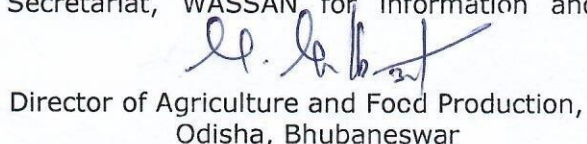 Secretariat, WASSAN for information and
Director of Agriculture and Food Production,
Odisha, Bhubaneswar